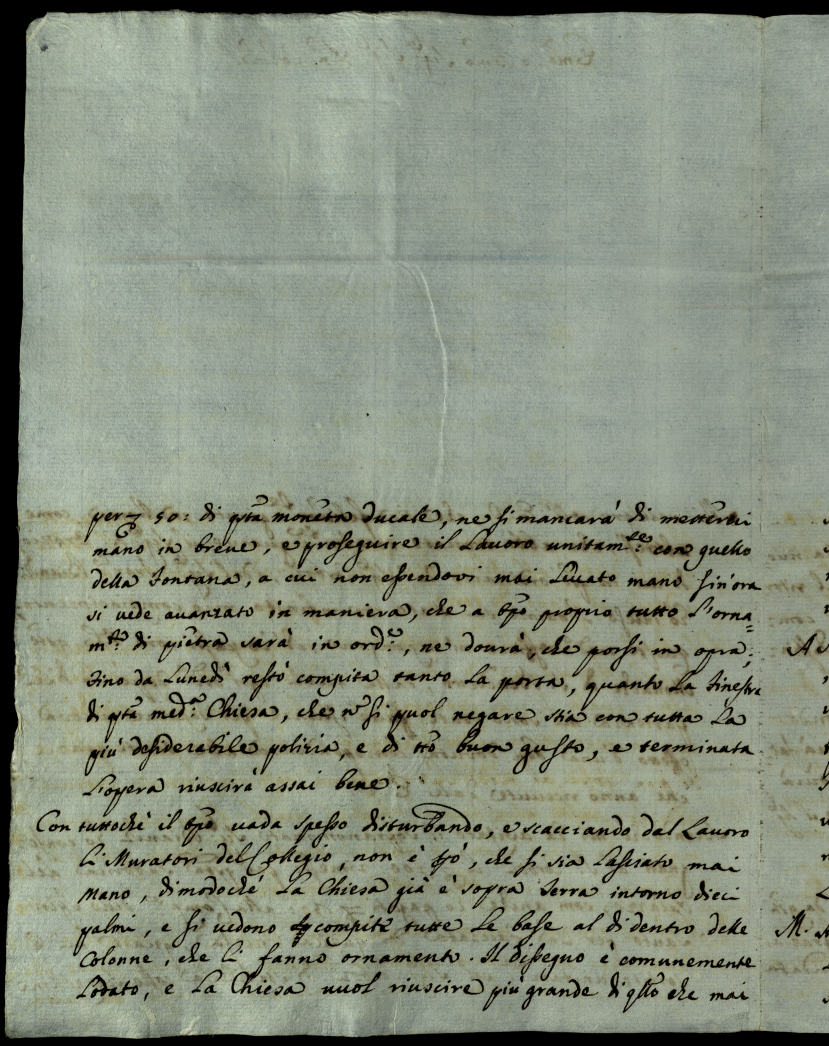 per 50: di qṫa moneta ducale, ne si mancarà di metterci
mano in breve, e proseguire il Lavoro unitam.te con quello
della Fontana, a cui non essendovi mai Levato mano sin'ora
si vede avanzato in maniera, che a tpo proprio tutto L'orna=
m.to di pietra sarà in ord.e, ne dourà, che porsi in opra;
Fino da Lunedì restò compita tanto La porta, quanto La Finestra
di qta med.a Chiesa, che nō si puol negare stia con tutta La
più desiderabile polizia, e di tto buon gusto, e terminata
L'opera riuscirà assai bene.
Con tuttochè il tpo vada spesso disturbando, e scacciando dal Lavoro
li Muratori del Collegio, non è pò, che si sia Lasciato mai
mano, dimodochè La Chiesa già è sopra Terra intorno dieci
palmi, e si vedono compite tutte Le base al di dentro delle
Colonne, che Li fanno ornamento. Il dissegno è comunemente
Lodato, e La Chiesa vuol riuscire più grande di qllo che mai
A
M.